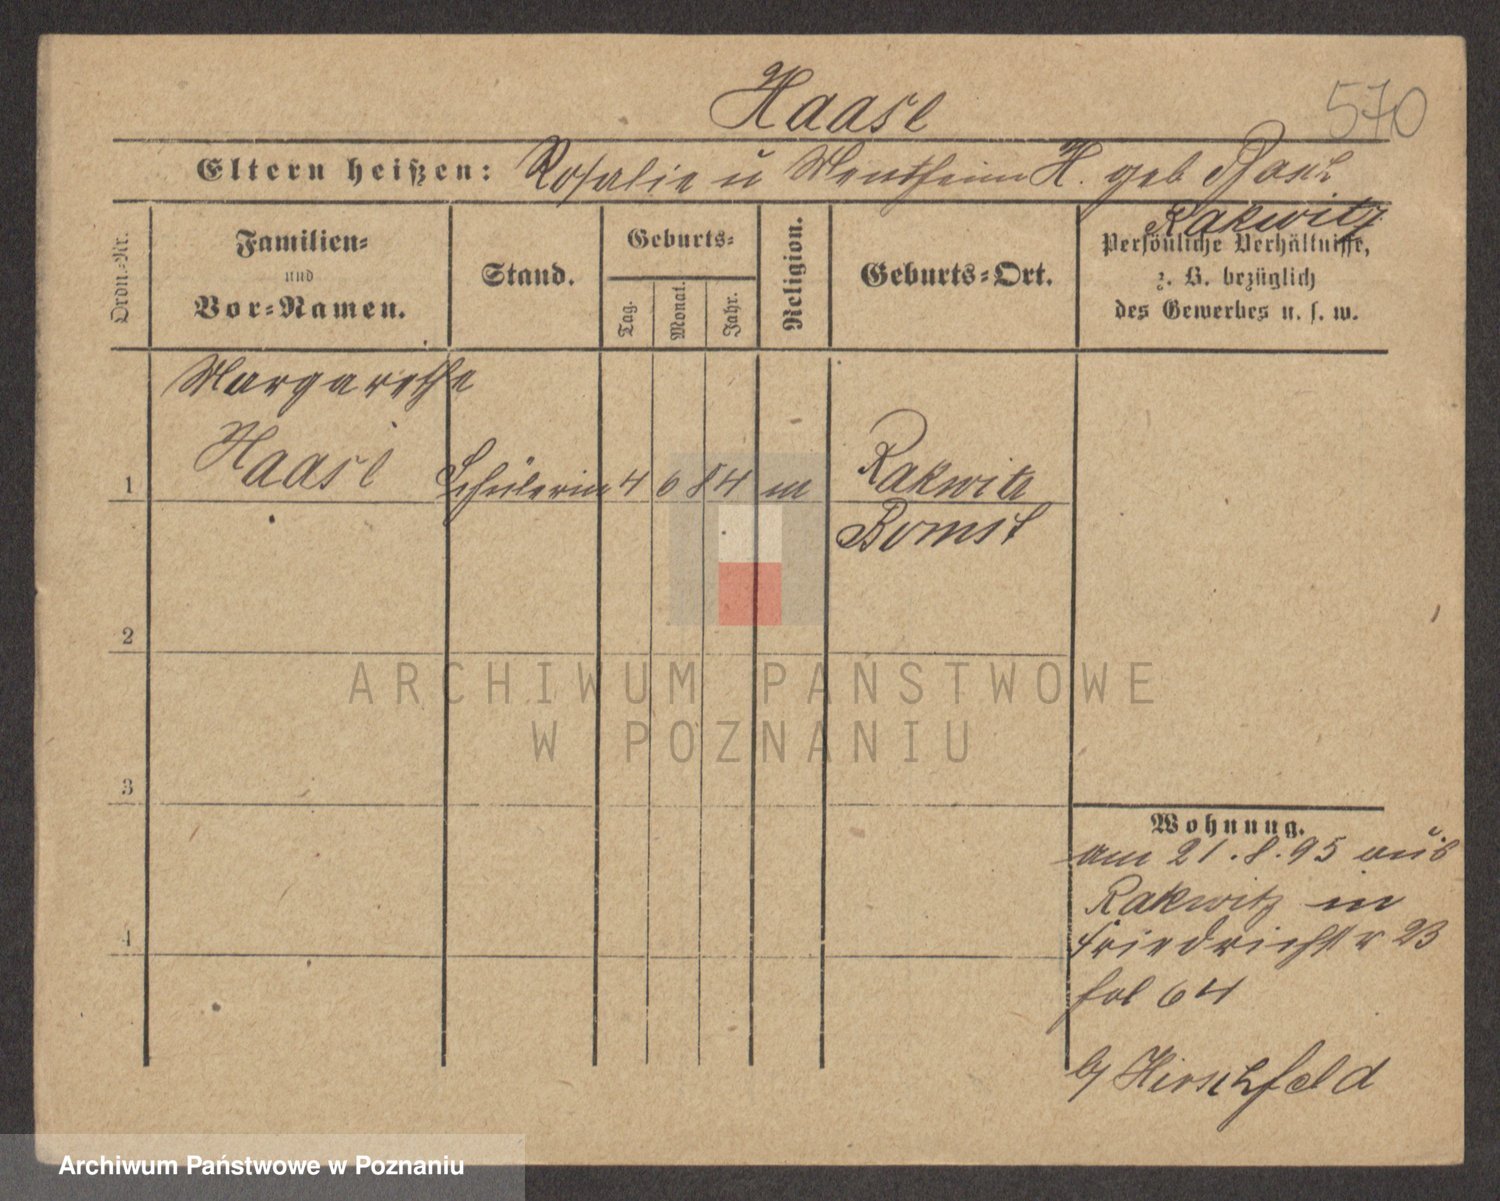 Haase
570
Eltern heißen: Rosalie u H. geb
Rakwitz
Ordn.-Nr.
Familien-
und
Vor-Namen.
Stand.
Geburts-
Tag.
Monat.
Jahr.
Religion.
Geburts-Ort.
Persönliche Verhältnisse,
z. B. bezüglich
des Gewerbes u. s. w.
Margarethe
Haase
1 Schülerin 4 6 84 m Rakwitz
Bomst
2
3
4
Wohnung.
am 21.8.95 aus
Rakwitz in
Friedrichstr 23
fol 64
b/ Hirschfeld
ARCHIWUM PAŃSTWOWE
W POZNANIU
Archiwum Państwowe w Poznaniu